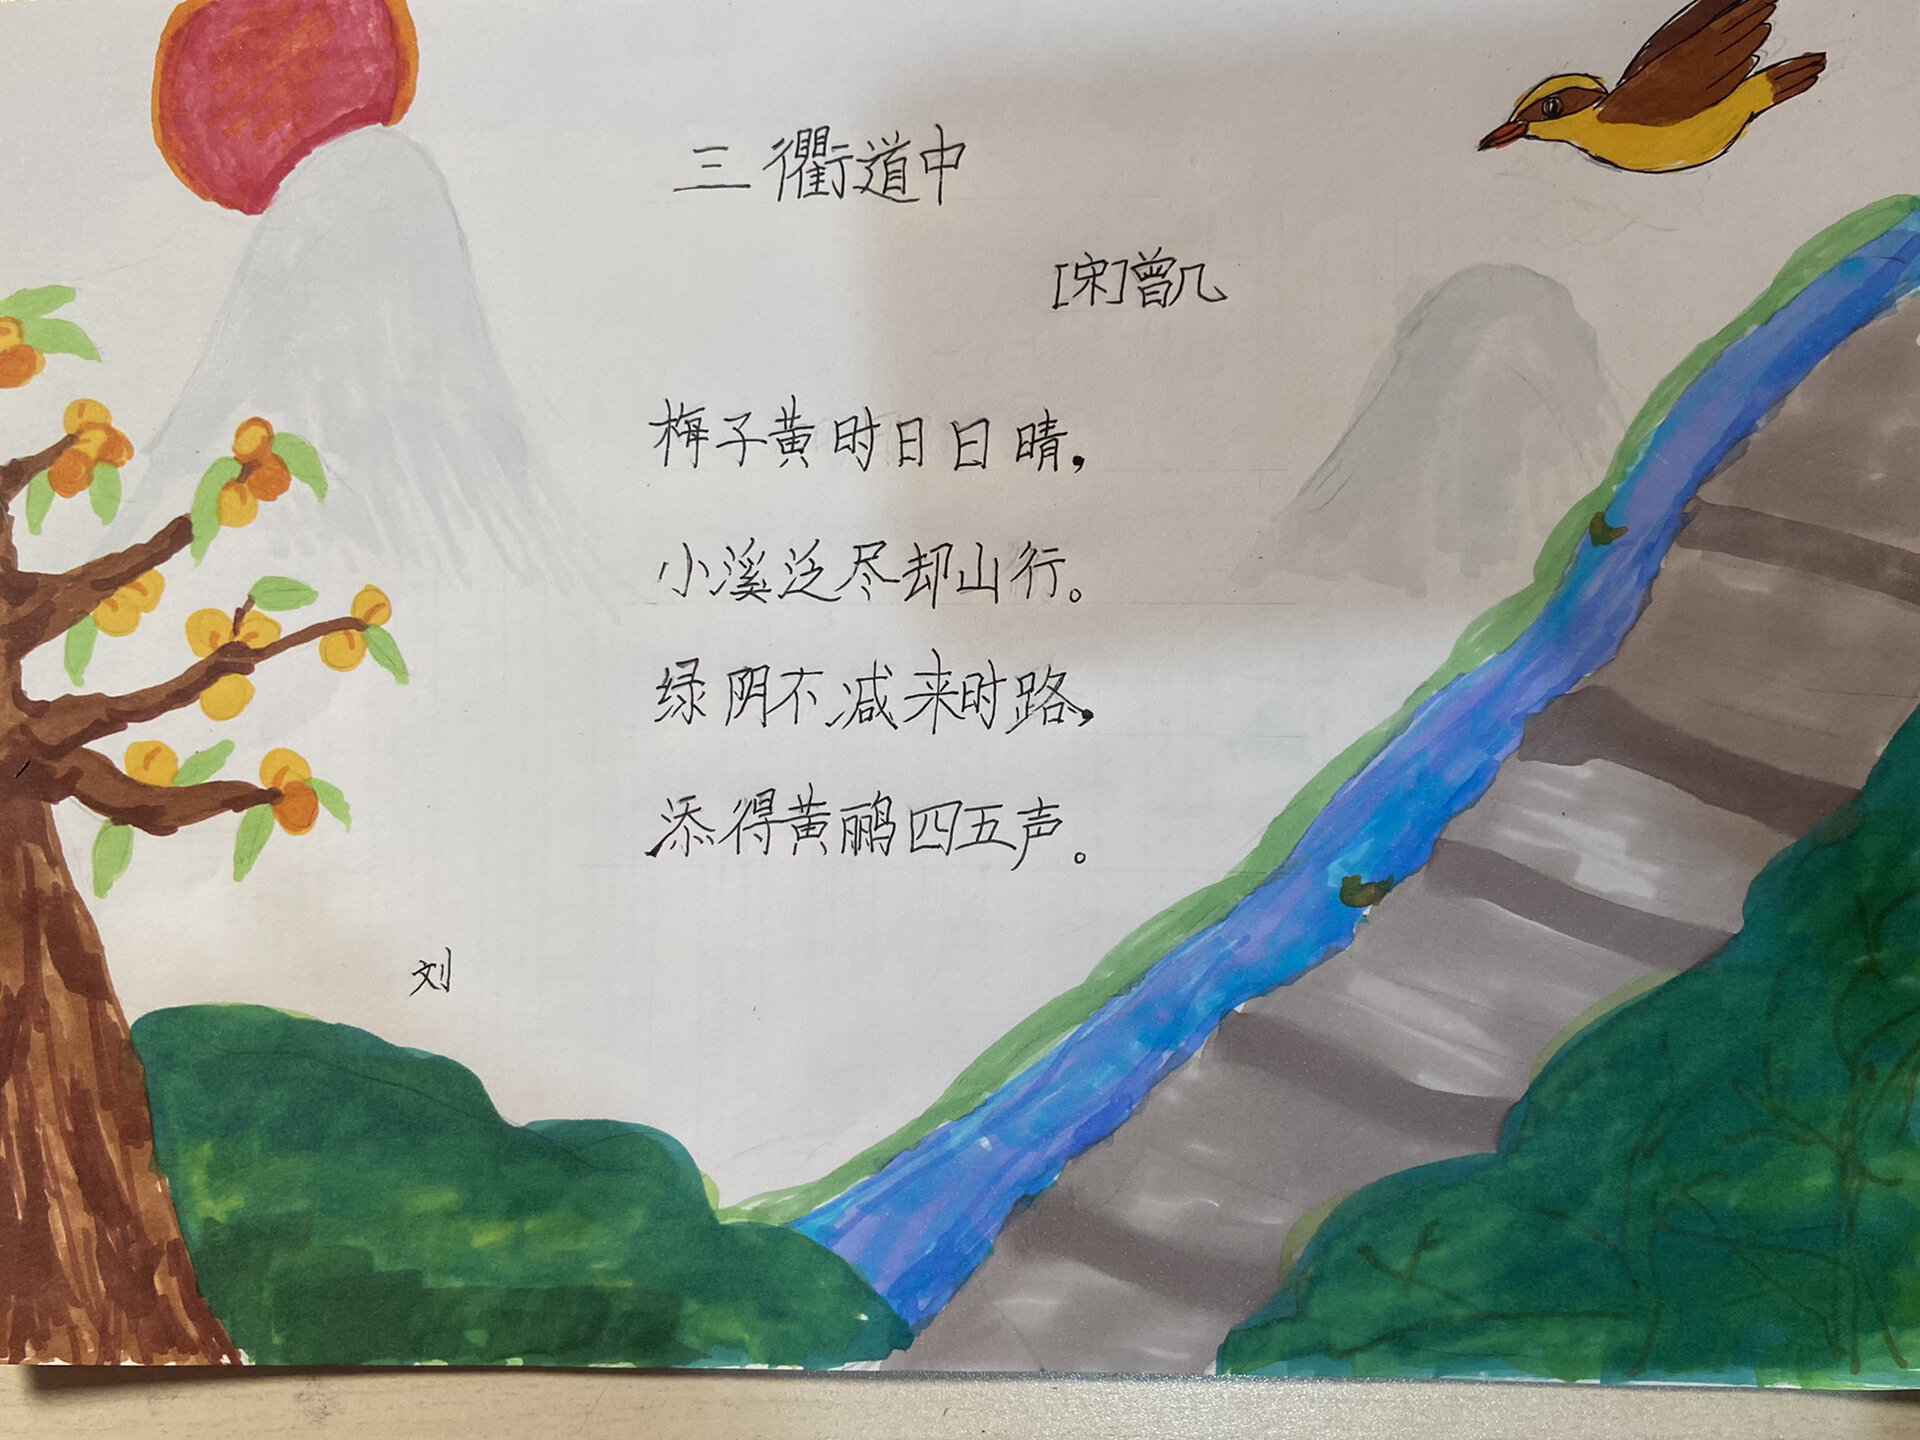 三衢道中
[宋]曾几
梅子黄时日日晴，
小溪泛尽却山行。
绿阴不减来时路，
添得黄鹂四五声。
刘